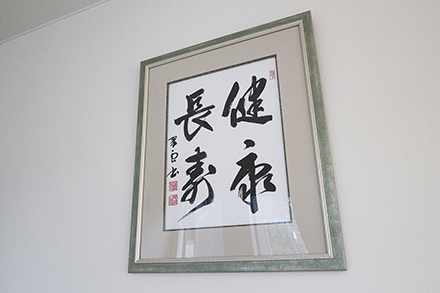 健康
長寿